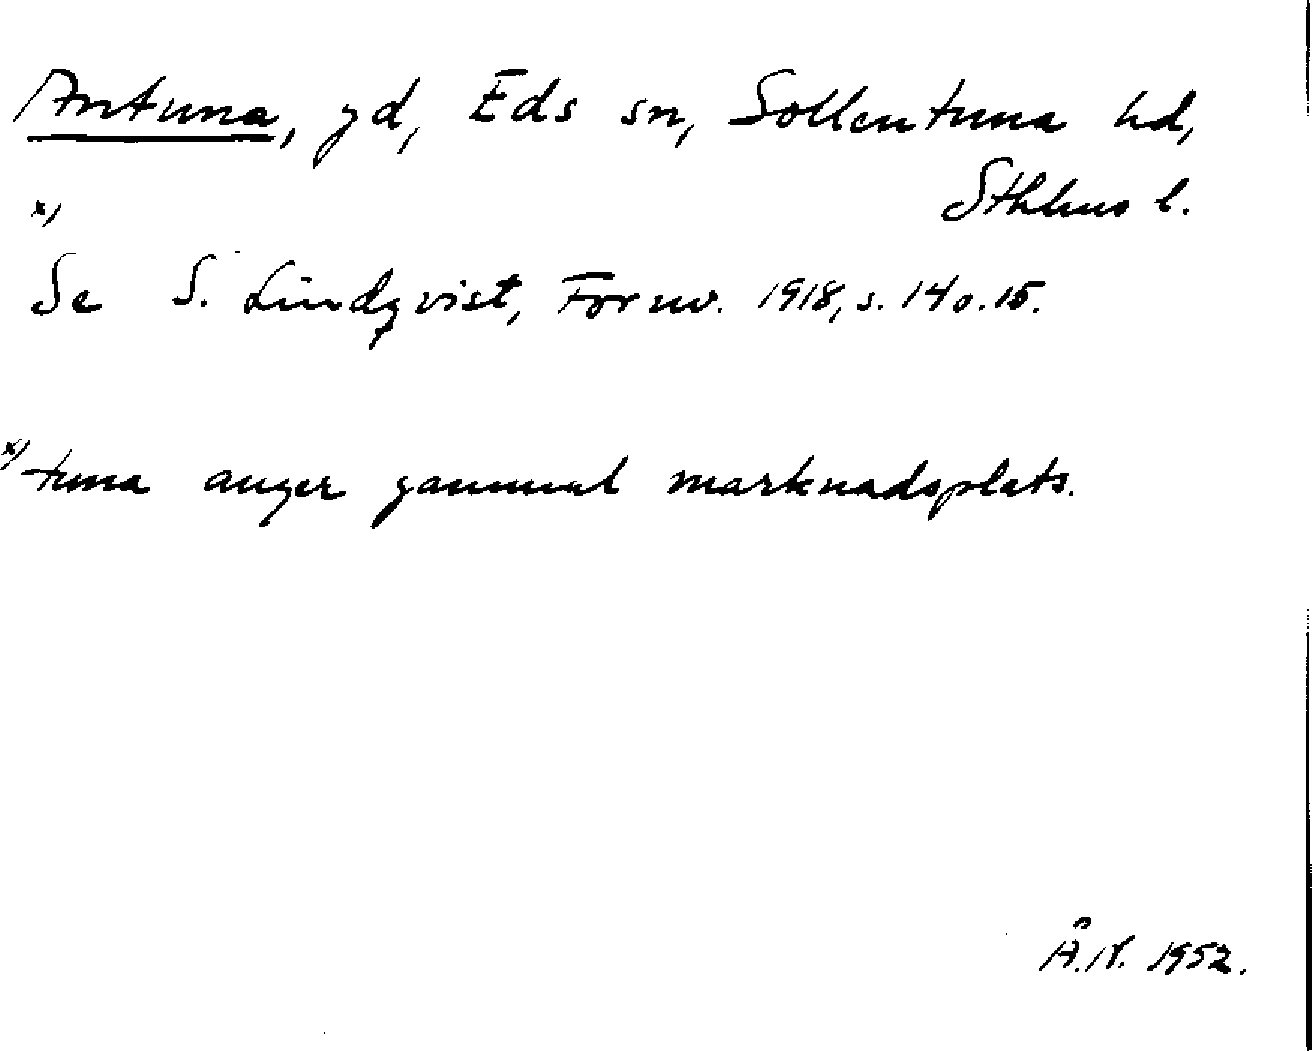 Antuna, gd, Eds sn, Sollentuna hd,
x) Sthlms l.
Se S. Lindqvist, Fornv. 1918, s. 14 o. 15.
x) tuna anger gammal marknadsplats.
Å.N. 1952.